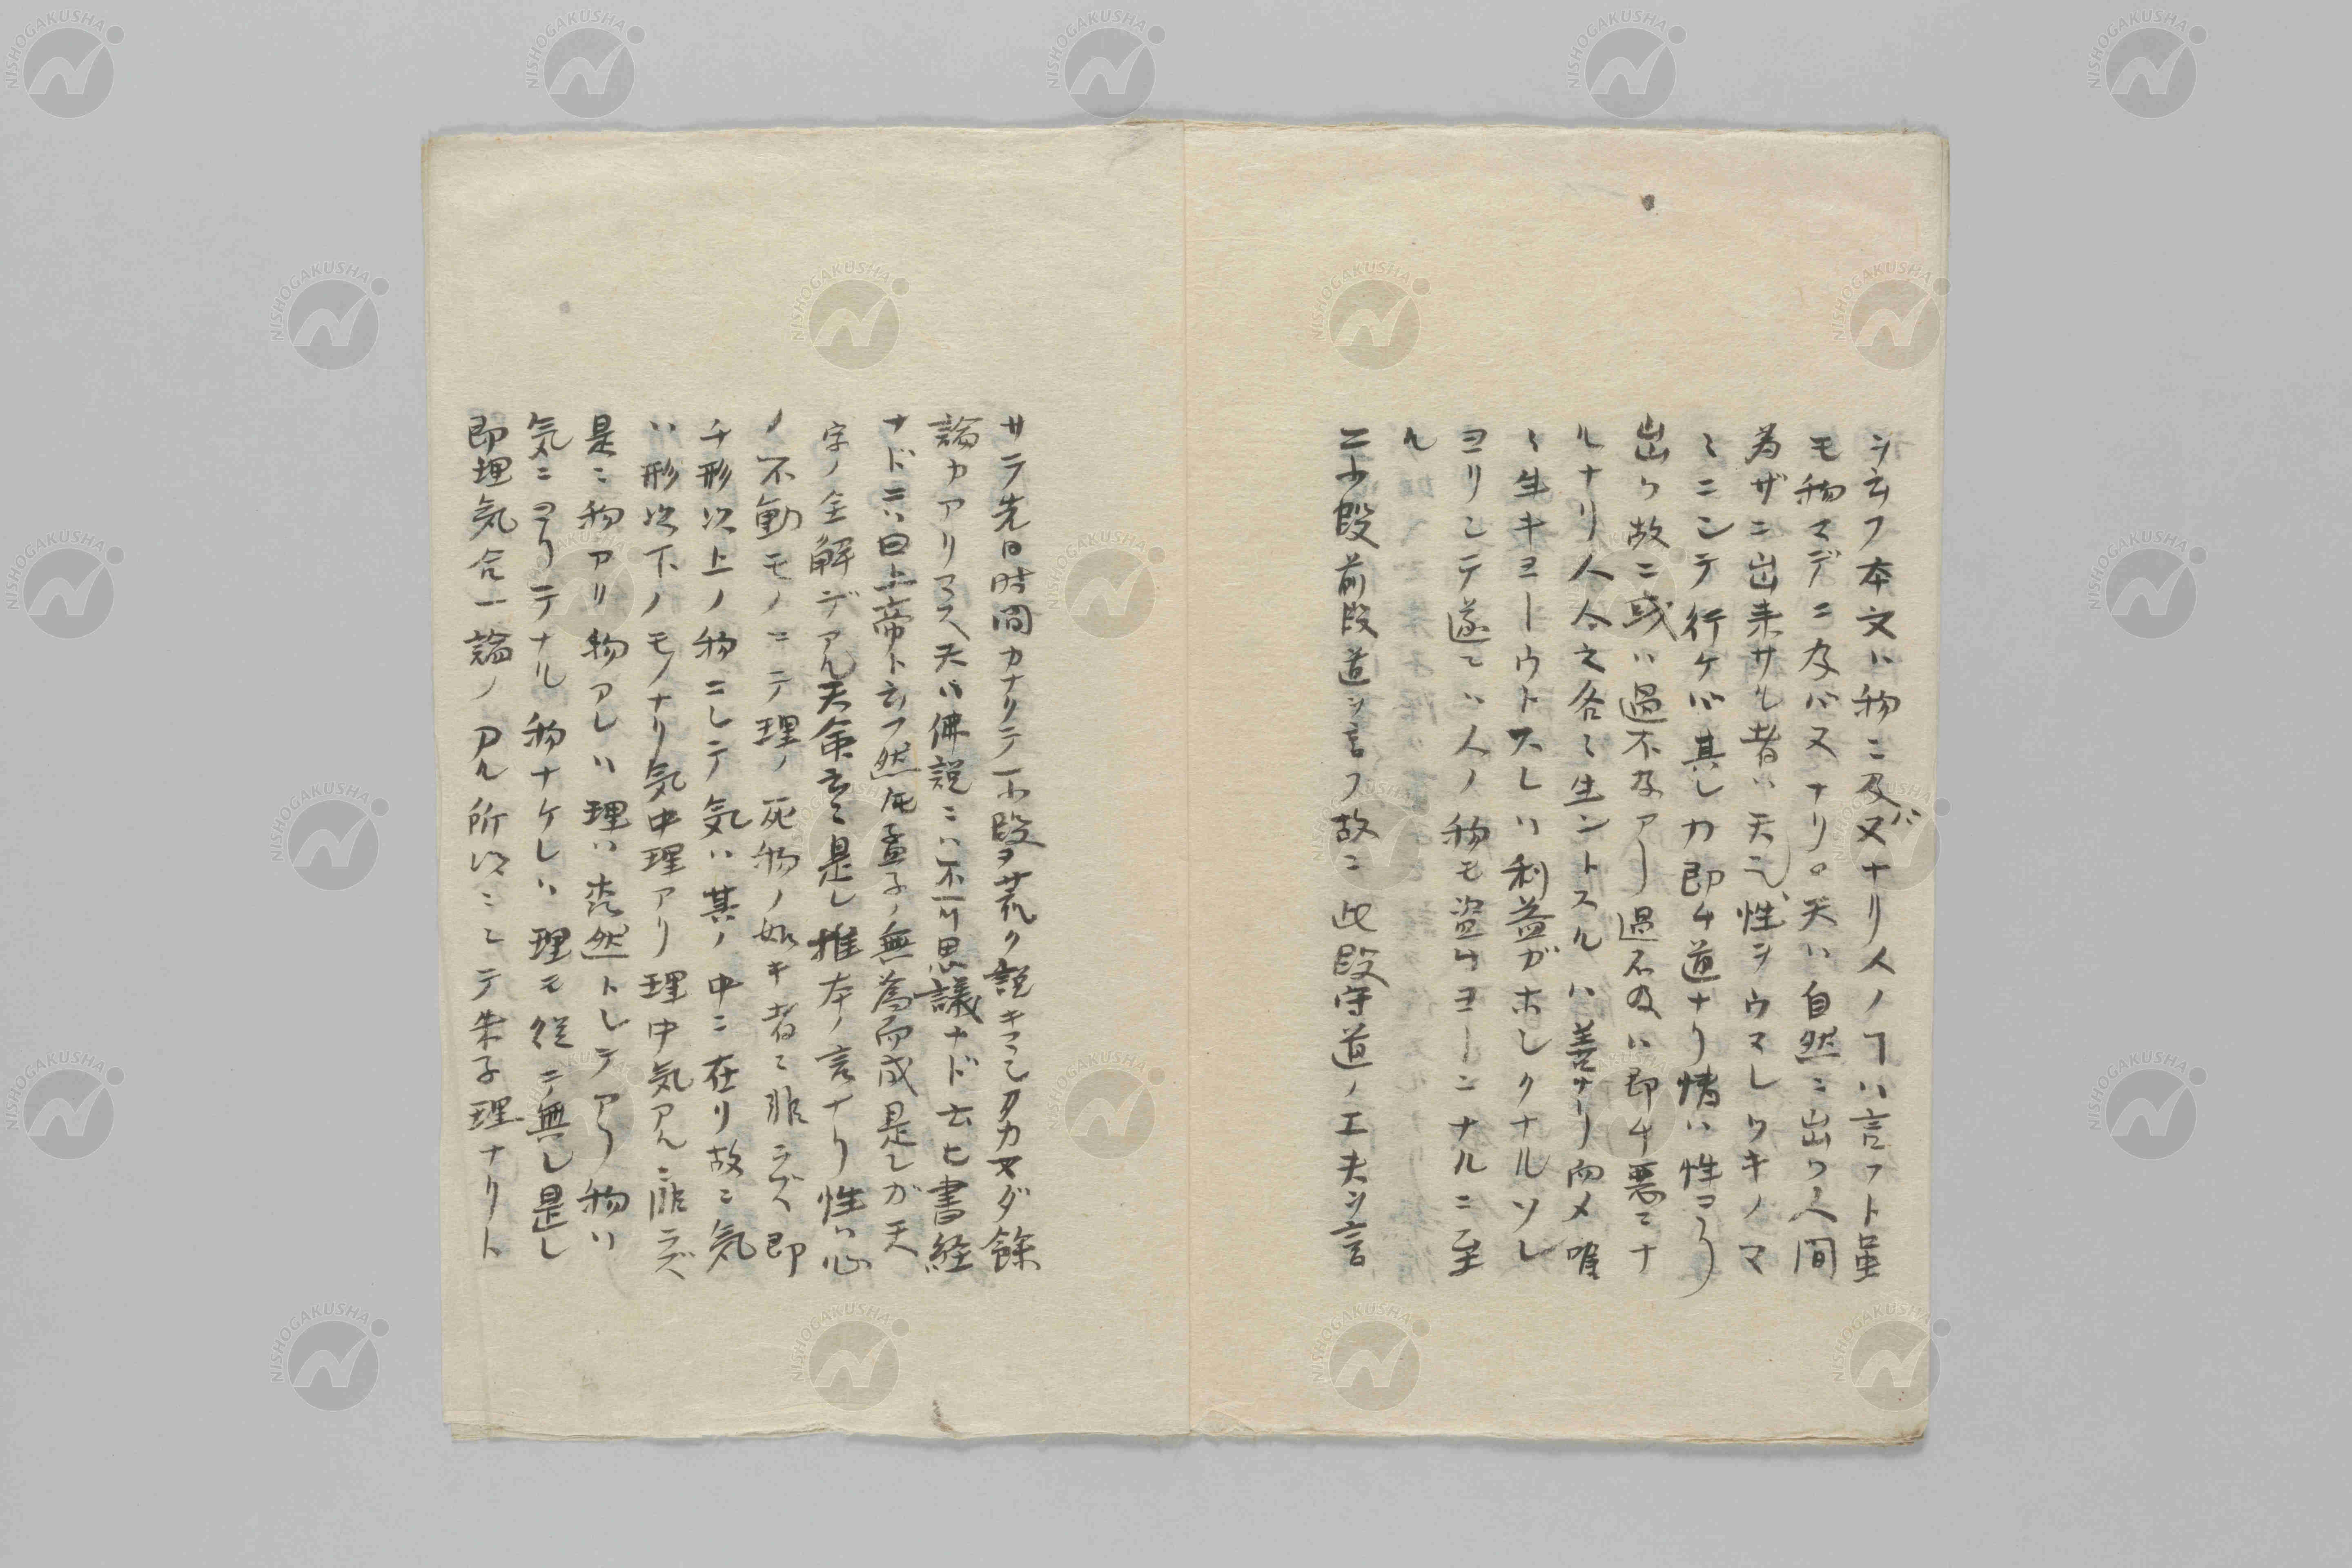 ヲ云フ本文ハ物ニ及バ又ナリ人ノヿハ言フト虽
モ物マデニ及バ又ナリ。天ハ自然ニ出ワ人間
為ザニ出来サル者ハ天ニ性ヲウマレワキノマ
ミニシテ行ケバ其レカ即チ道ナリ情ハ性ヨリ
出ワ故ニ或ハ過不及アリ過不及ハ即チ悪ニナ
ルナリ人人之各〻生ントスルハ善ナリ而メ唯
〻生キヨーウトスレハ利益ガホシクナルソレ
ヨリシテ遂ニハ人ノ物モ盗ムヨーニナルニ至
ル
二小段前段道ヲ言フ故ニ此段守道ノ工夫ヲ言
サラ先日時間カナクテ一小段ヲ荒ク説キマシタカマダ餘
論カアリマス天ハ佛説ニハ不可思議ナド云ヒ書経
ナドニハ曰上帝ト云フ然孟子ノ無為而成是レガ天
字ノ全解デアル天命云〻是レ推本ノ言ナリ性ハ心
ノ不動モノニテ理ノ死物ノ如キ者ニ非ラズ即
チ形以上ノ物ニシテ気ハ其ノ中ニ在リ故ニ気
ハ形以下ノモノナリ気中理アリ理中気アルニ非ラズ
是ニ物アリ物アレハ理ハ然トシテアリ物ハ
気ニヨリテナル物ナケレハ理モ従テ無シ是レ
即理気合一論ノアル所以ニシテ朱子理ナリト
NISHOGAKUSHA